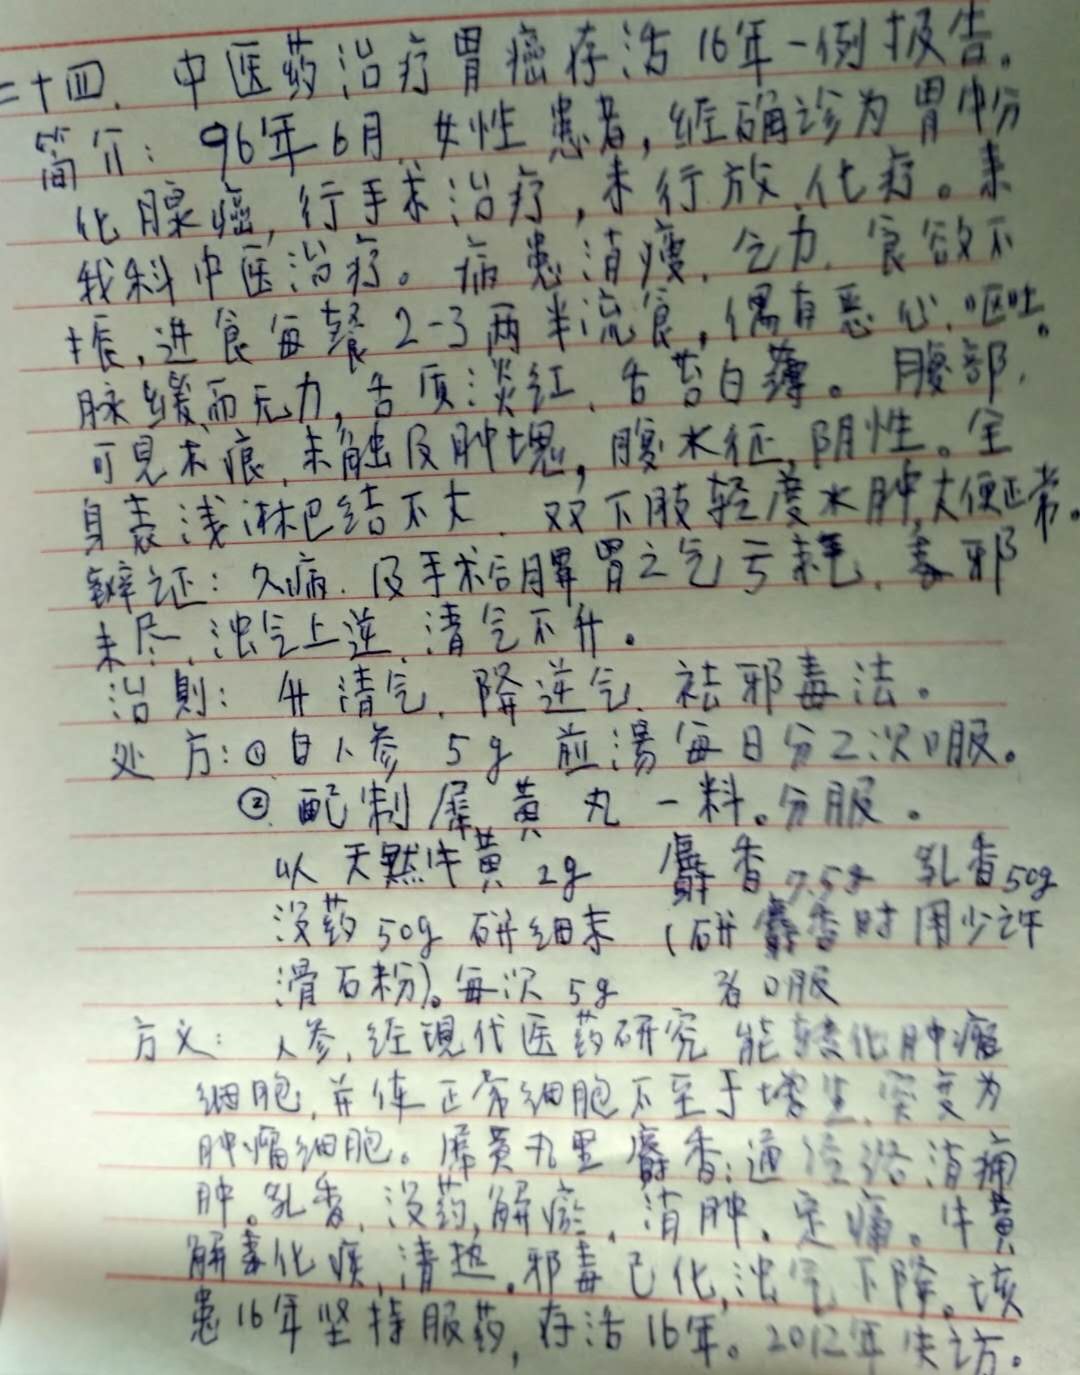 二十四、中医药治疗胃癌存活16年一例报告。
简介：96年6月，女性患者，经确诊为胃中分
化腺癌，行手术治疗，未行放、化疗。来
我科中医治疗。病患消瘦、乞力、食欲不
振，进食每餐2-3两半流食，偶有恶心、呕吐。
脉缓而无力，舌质：淡红、舌苔白薄。腹部，
可見术痕，未触及肿块，腹水征，阴性。全
身表浅淋巴结不大、双下肢轻度水肿，大便正常。
辨证：久病，及手术后脾胃之气亏耗，毒邪
未尽，浊气上逆，清气不升。
治則：升清气，降逆气，祛邪毒法。
处方：①白人参 5g 煎湯每日分2次口服。
②配制犀黄丸一料。分服。
以天然牛黄2g 麝香7.5g 乳香50g
没药50g 研细末（研麝香时用少许
滑石粉）。每次5g 口服
方义：人参，经現代医药研究能转化肿瘤
细胞，并使正常细胞不至于增生、突变为
肿瘤细胞。犀黄丸里麝香：通经络消痈
肿。乳香，没药，解瘀，消肿，定痛。牛黄
解毒化痰，清热。邪毒已化，浊气下降。该
患16年坚持服药，存活16年。2012年失访。